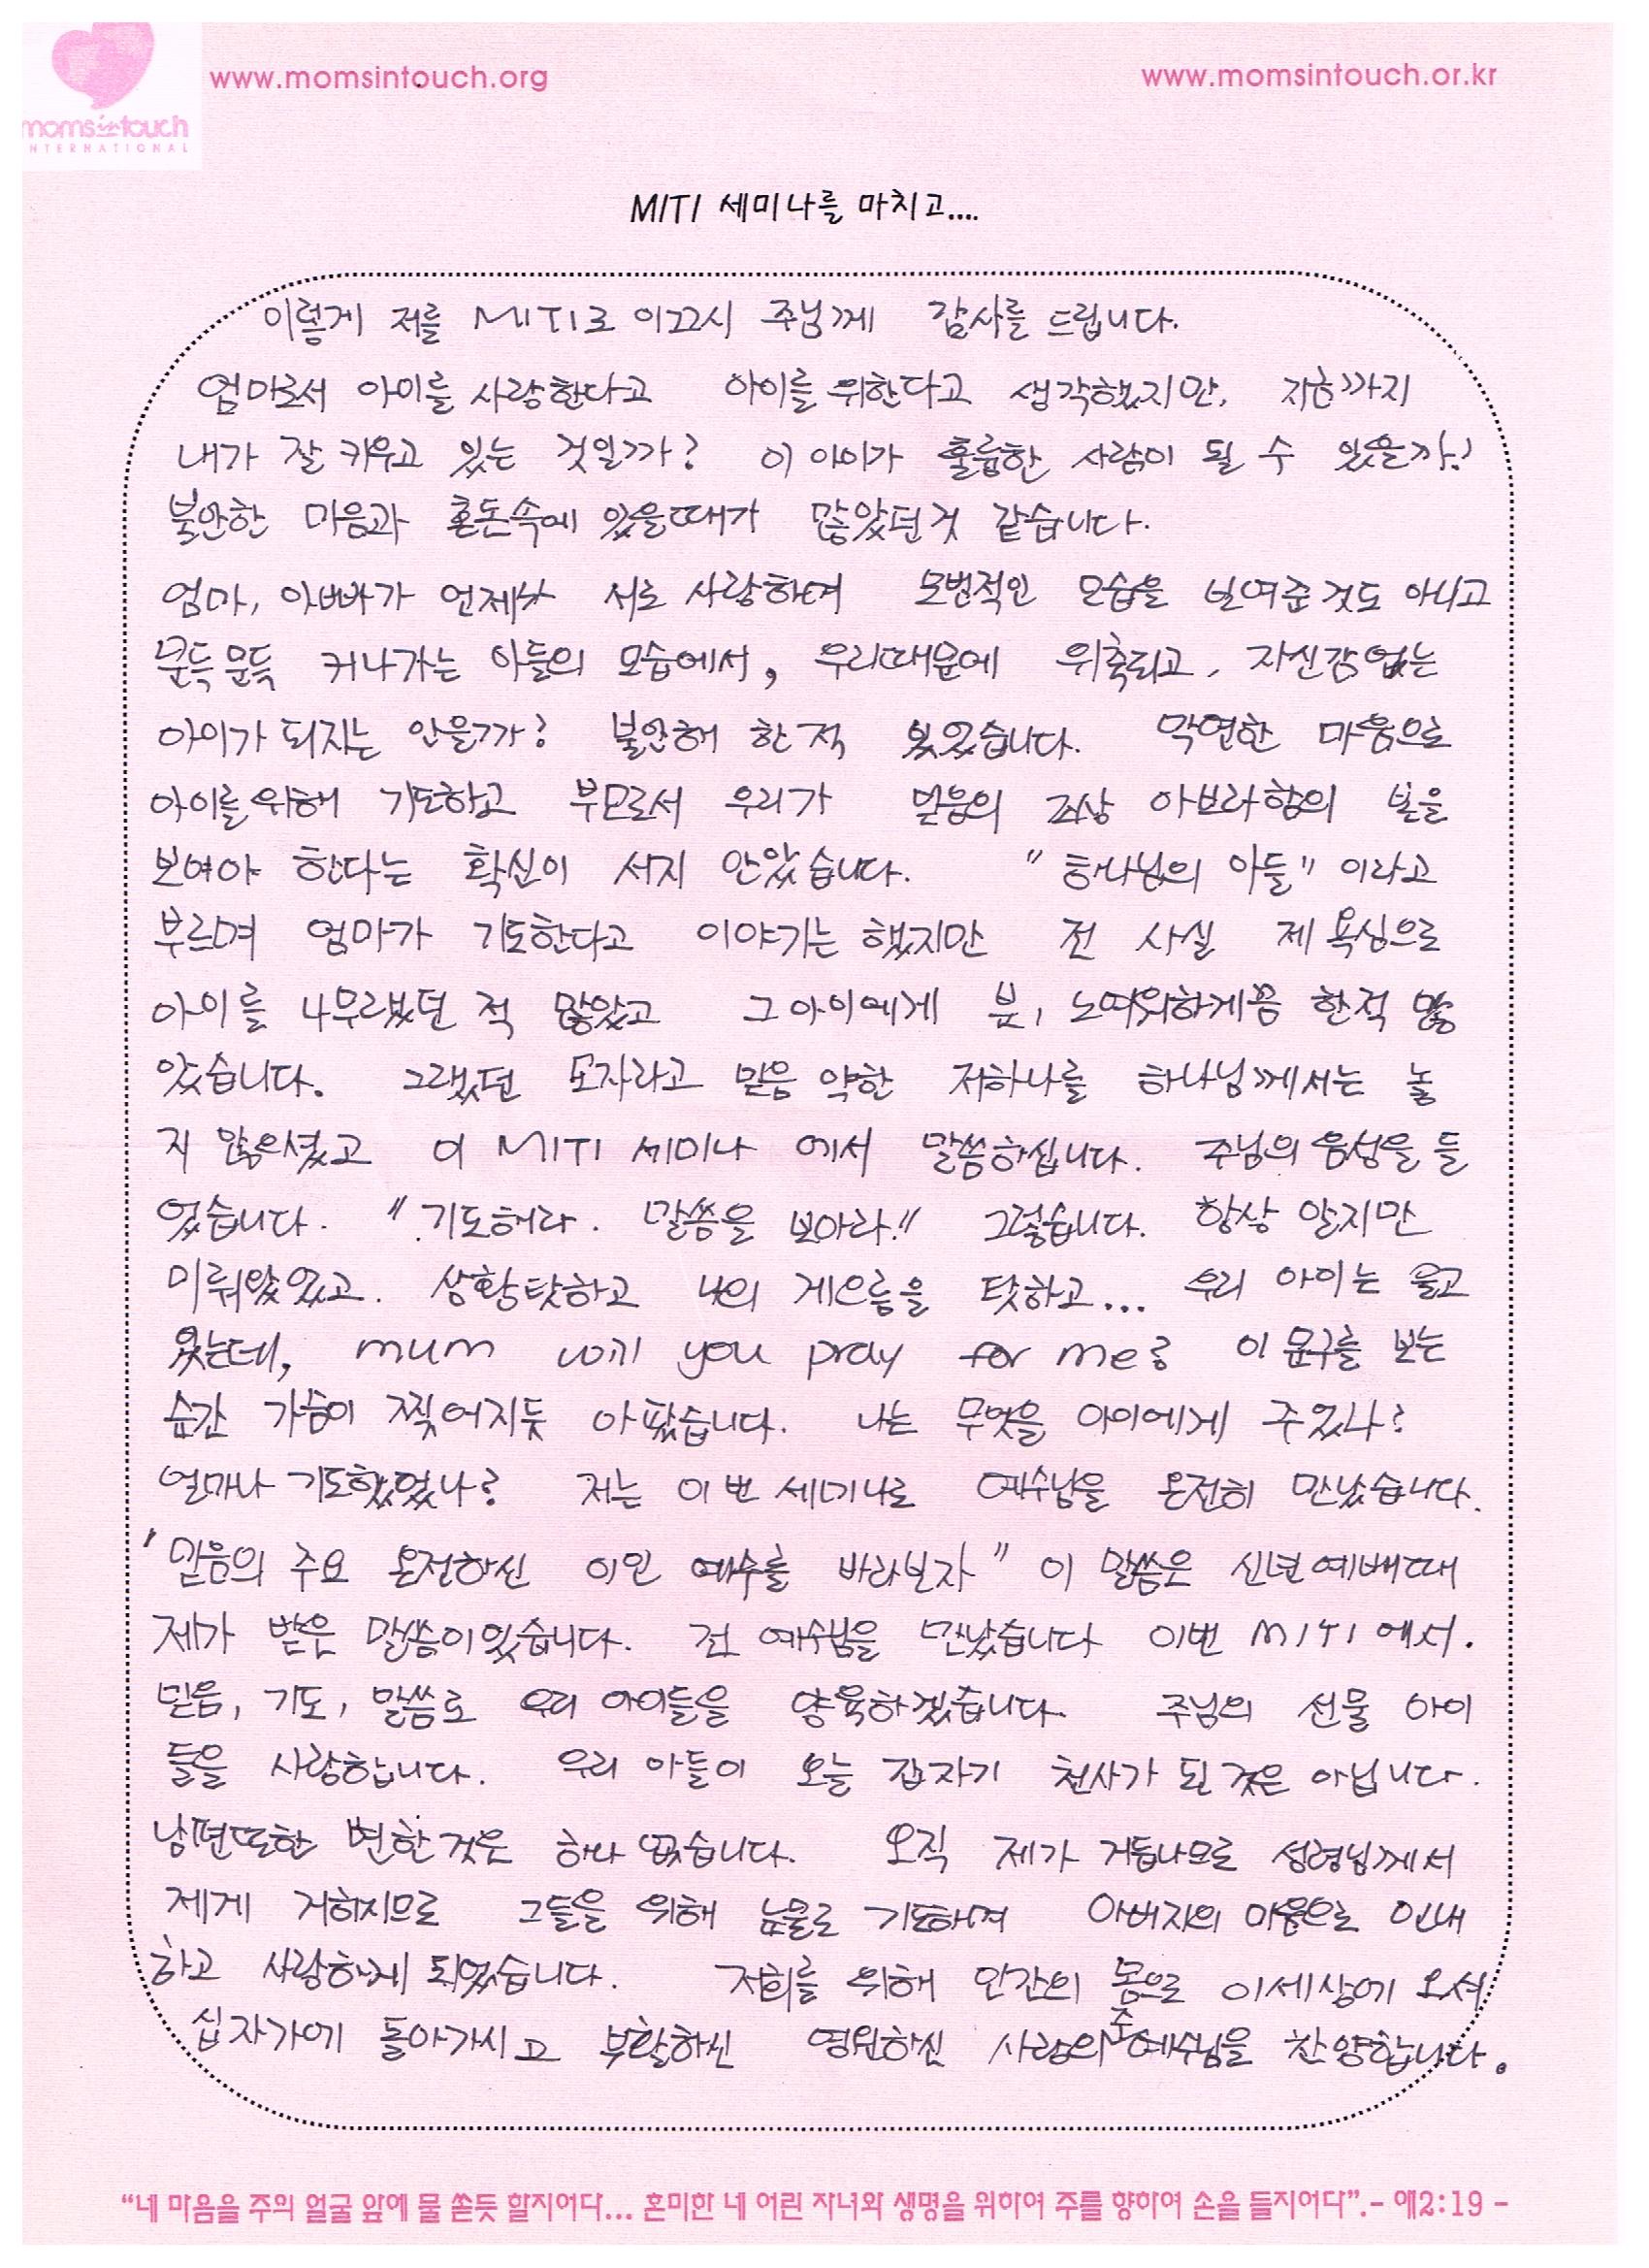 www.momsintouch.org
www.momsintouch.or.kr
moms in touch
INTERNATIONAL
MITI 세미나를 마치고....
이렇게 저를 MITI로 이끄시 주님께 감사를 드립니다.
엄마로서 아이를 사랑한다고 아이를 위한다고 생각했지만, 지금까지
내가 잘 키우고 있는 것일까? 이 아이가 훌륭한 사람이 될 수 있을까?
불안한 마음과 혼돈속에 있을때가 많았던것 같습니다.
엄마, 아빠가 언제나 서로 사랑하며 모범적인 모습을 보여준것도 아니고
문득문득 커나가는 아들의 모습에서, 우리때문에 위축되고, 자신감없는
아이가 되지는 안을까? 불안해 한적 있었습니다. 막연한 마음으로
아이를위해 기도하고 부모로서 우리가 믿음의 조상 아브라함의 본을
보여야 한다는 확신이 서지 안았습니다. "하나님의 아들" 이라고
부르며 엄마가 기도한다고 이야기는 했지만 전 사실 제 욕심으로
아이를 나무랬던 적 많았고 그아이에게 분, 노여워하게끔 한적 많
았습니다. 그랬던 모자라고 믿음 약한 저하나를 하나님께서는 놓
지 않으셨고 이 MITI 세미나 에서 말씀하십니다. 주님의 음성을 들
었습니다. "기도해라. 말씀을 보아라." 그렇습니다. 항상 알지만
미뤄왔었고. 상황탓하고 나의 게으름을 탓하고... 우리 아이는 울고
있는데, mum will you pray for me? 이 문구를 보는
순간 가슴이 찢어지듯 아팠습니다. 나는 무엇을 아이에게 주었나?
얼마나 기도했었나? 저는 이번 세미나로 예수님을 온전히 만났습니다.
'믿음의 주요 온전하신 이인 예수를 바라보자" 이 말씀은 신년예배때
제가 받은 말씀이있습니다. 전 예수님을 만났습니다 이번 MITI에서.
믿음, 기도, 말씀로 우리 아이들을 양육하겠습니다. 주님의 선물 아이
들을 사랑합니다. 우리 아들이 오늘 갑자기 천사가 된것은 아닙니다.
남편또한 변한것은 하나 없습니다. 오직 제가 거듭나므로 성령님께서
제게 거하지므로 그들을 위해 눈물로 기도하며 아버지의 마음으로 인내
하고 사랑하게 되었습니다. 저희를 위해 인간의 몸으로 이세상에 오셔
십자가에 돌아가시고 부활하신 영원하신 사랑의 주 예수님을 찬양합니다.
"네 마음을 주의 얼굴 앞에 물 쏟듯 할지어다... 혼미한 네 어린 자녀와 생명을 위하여 주를 향하여 손을 들지어다".- 애2:19 -